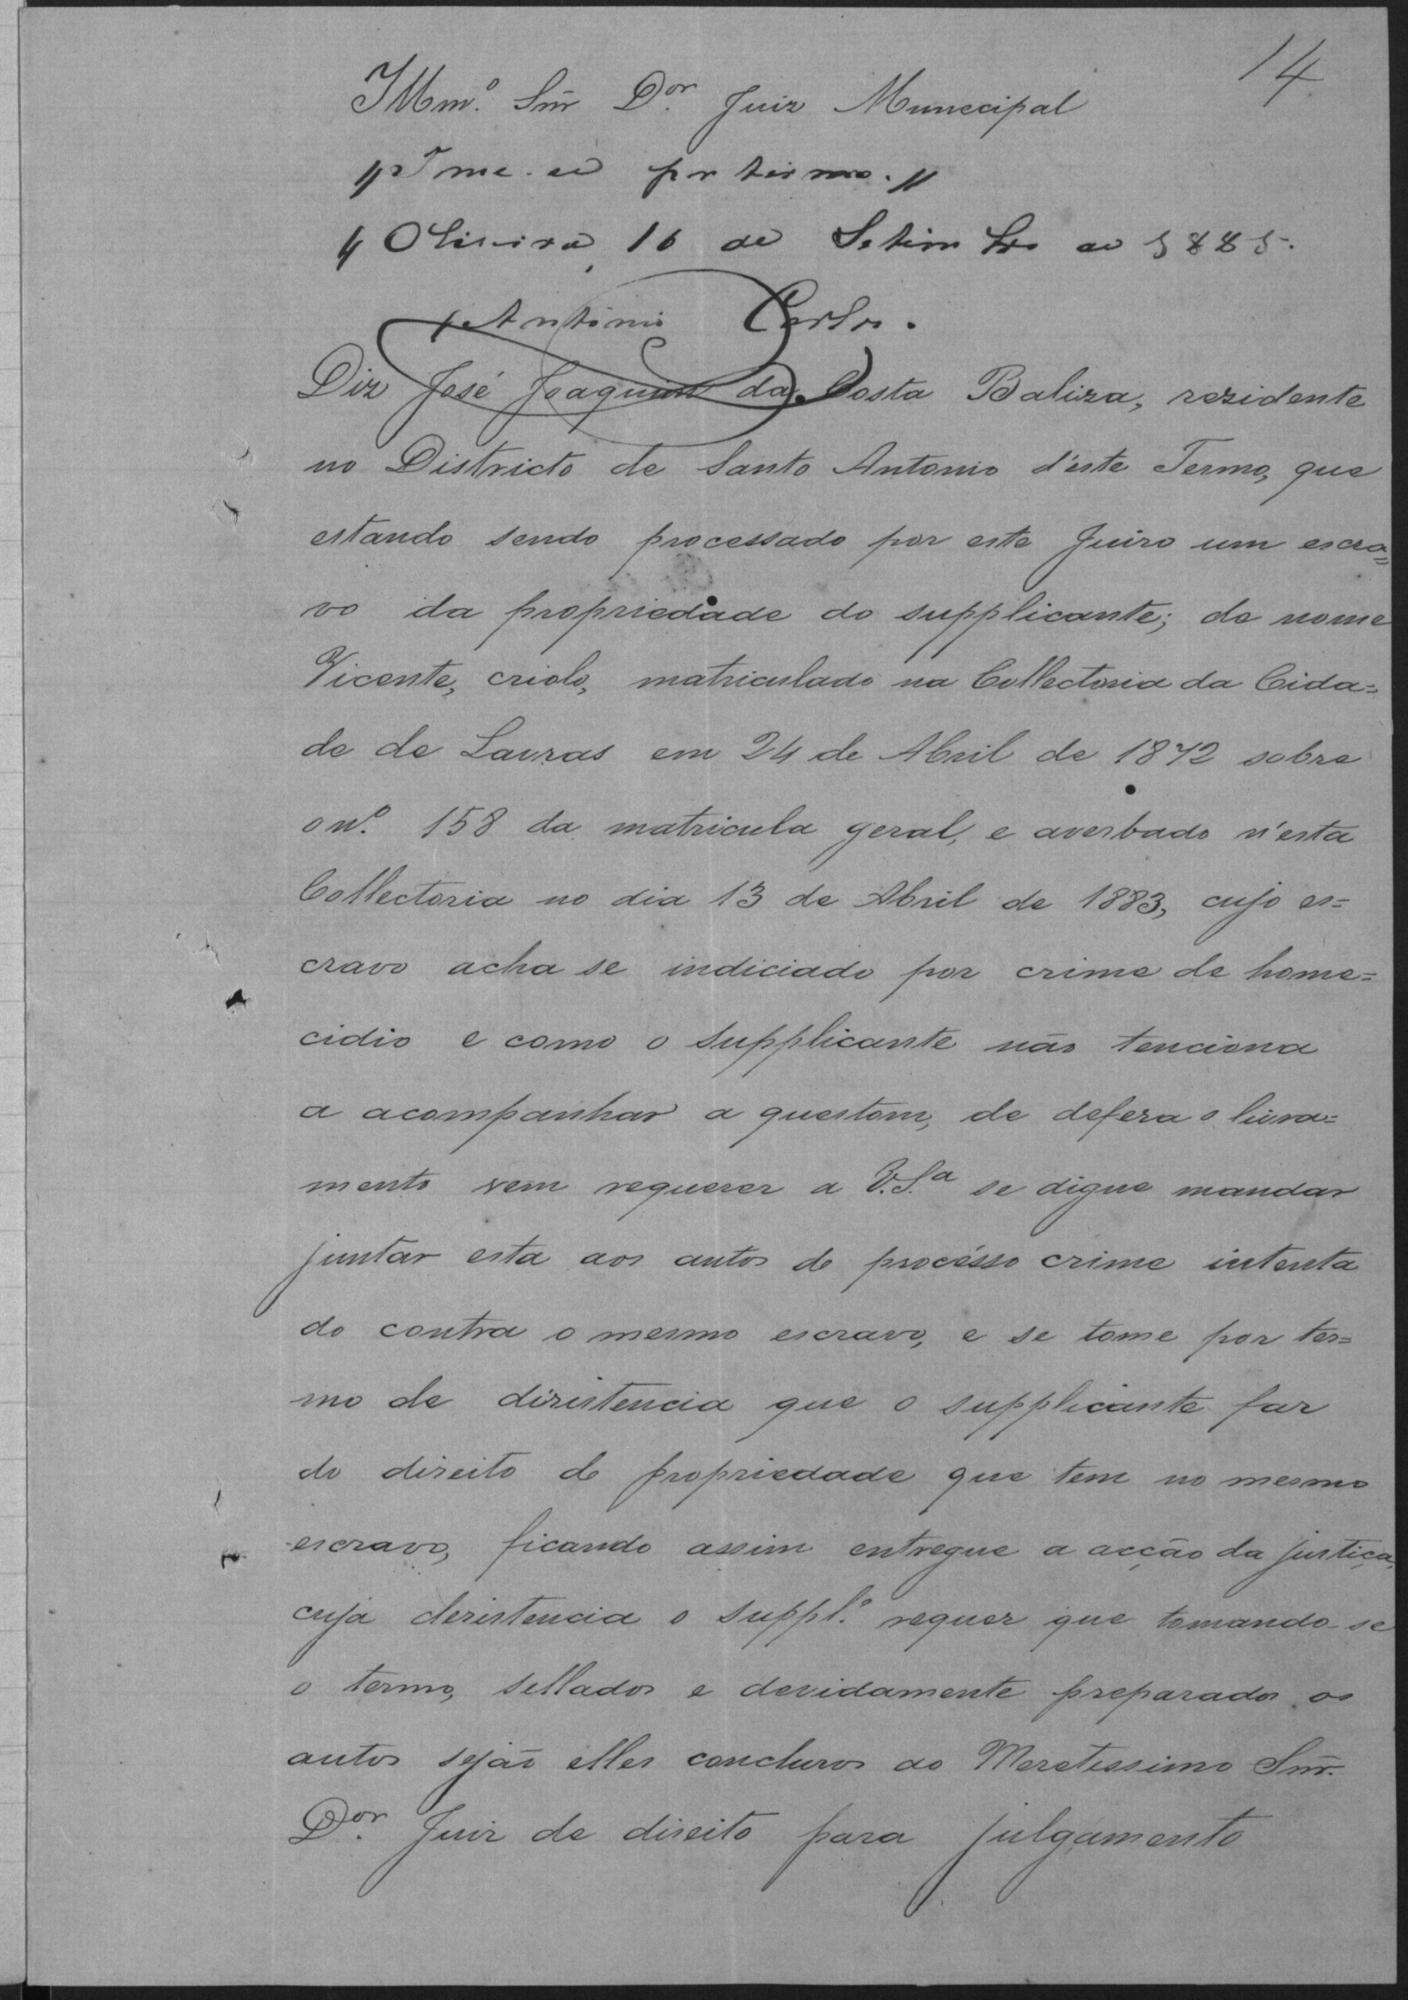 14
Illmº. Snr̃ Dor. Juiz Municipal
Tome-se por termo.
Oliveira, 16 de Setembro de 1885.
Antonio Carlos.
Diz José Joaquim da Costa Baliza, rezidente
no Districto de Santo Antonio d'este Termo, que
estando sendo processado por este Juizo um escra=
vo da propriedade do supplicante; de nome
Vicente, criolo, matriculado na Collectoria da Cida=
de de Lavras em 24 de Abril de 1872 sobre
o nº. 158 da matricula geral, e averbado n'esta
Collectoria no dia 13 de Abril de 1883, cujo es=
cravo acha se indiciado por crime de home=
cidio e como o supplicante não tenciona
a acompanhar a questam, de defeza o livra=
mento vem requerer a V.Sª se digne mandar
juntar esta aos autos do procésso crime intenta
do contra o mesmo escravo, e se tome por ter=
mo de dizistencia que o supplicante faz
do direito de propriedade que tem no mesmo
escravo, ficando assim entregue a acção da justiça,
cuja dezistencia o supplº. requer que tomando-se
o termo, sellados e devidamente preparados os
autos sejão elles concluzos ao Meretessimo Snr̃.
Dor. Juiz de direito para julgamento